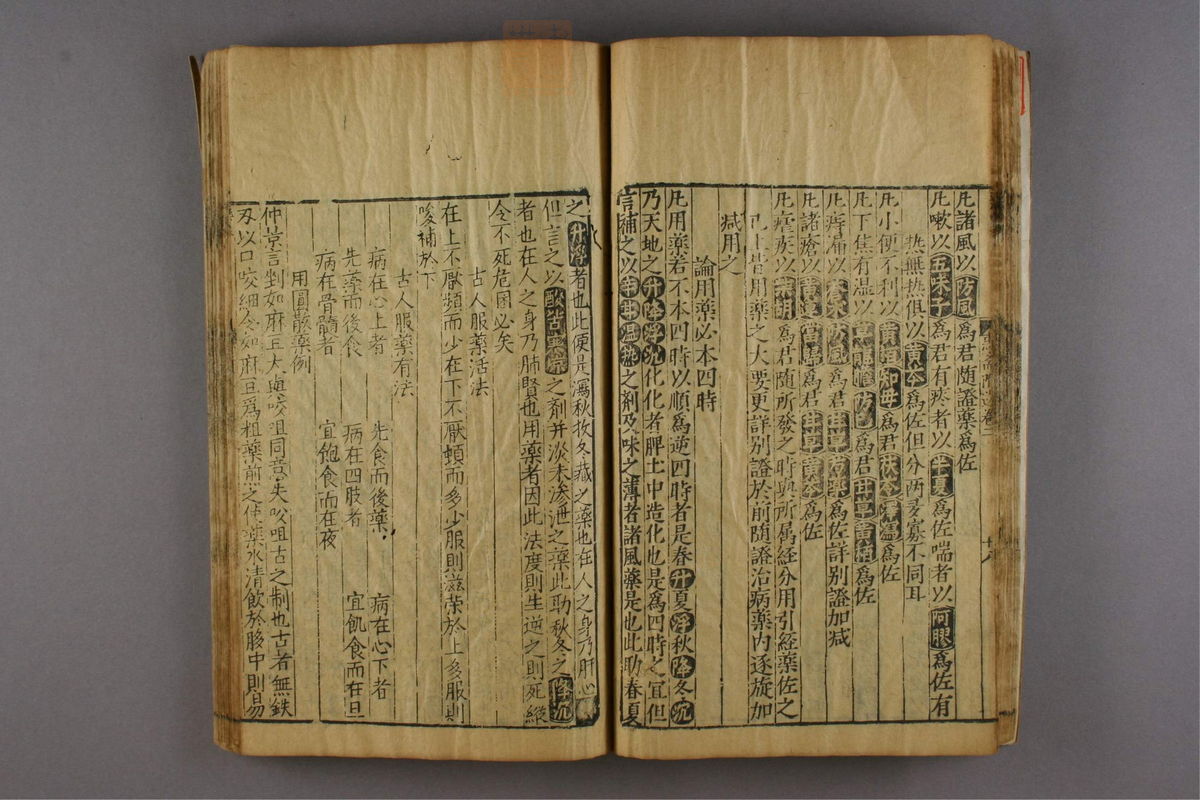 凡諸風以防風爲君隨證藥爲佐
凡嗽以五味子爲君有痰者以半夏爲佐喘者以阿膠爲佐有
熱無熱俱以黄芩爲佐但分兩多寡不同耳
凡小便不利以黄栢知母爲君茯苓澤瀉爲佐
凡下焦有湿以草龍膽防己爲君甘草黄栢爲佐
凡痔漏以蒼术防風爲君甘草芍藥爲佐詳别證加减
凡諸瘡以黄連當歸爲君甘草黄芩爲佐
凡瘧疾以柴胡爲君隨所發之時與所属經分用引經藥佐之
已上皆用藥之大要更詳别證於前隨證治病藥内逐旋加
减用之
論用藥必本四時
凡用藥若不本四時以順爲逆四時者是春升夏浮秋降冬沉
乃天地之升降浮沉化化者脾土中造化也是爲四時之宜但
言補之以辛甘温熱之剤及味之薄者諸風藥是也此助春夏
之升浮者也此便是瀉秋收冬藏之藥也在人之身乃肝心
但言之以酸苦寒凉之剤并淡味渗泄之藥此助秋冬之降沉
者也在人之身乃肺腎也用藥者因此法度則生逆之則死縱
令不死危困必矣
古人服藥活法
在上不厭頻而少在下不厭頓而多少服則滋荣於上多服則
峻補於下
古人服藥有法
病在心上者 先食而後藥 病在心下者
先藥而後食 病在四肢者 宜飢食而在旦
病在骨髓者 宜飽食而在夜
用圓散藥例
仲景言剉如麻豆大與㕮咀同意夫㕮咀古之制也古者無鉄
刃以口咬細令如麻豆爲粗藥煎之使藥水清飲於膓中則易